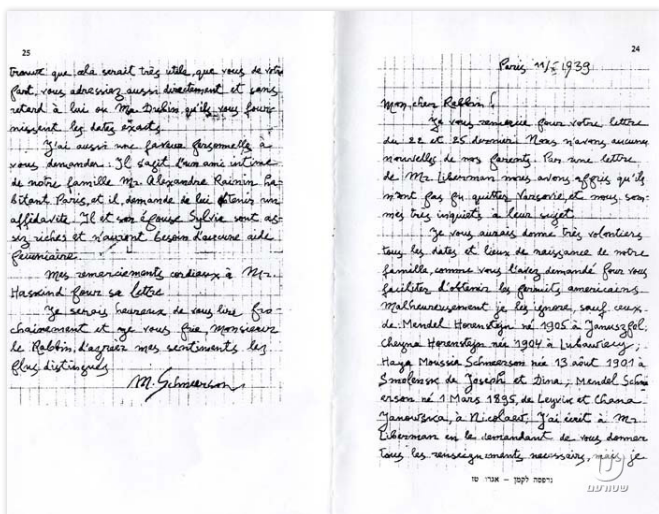 24
Paris 11/X 1939
Mon cher Rabbin!
Je vous remercie pour votre lettre
du 22 et 25 dernier. Nous n'avons aucunes
nouvelles de nos parents. Par une lettre
de Mr Liberman nous avons appris qu'ils
n'ont pas pu quitter Varsovie et nous som-
mes très inquiets à leur sujet.
Je vous aurais donné très volontiers
tous les dates et lieux de naissance de notre
famille, comme vous l'avez demandé pour vous
faciliter d'obtenir les permits americains.
Malheureusement je les ignore, sauf ceux
de: Mendel Horenstejn né 1905 à Januszpol;
Cheyna Horenstejn née 1904 à Lubawiczy;
Haya Moussia Schneerson née 13 août 1901 à
Smolensk de Joseph et Dina; Mendel Schne
erson né 1 Mars 1895, de Leyvik et Chana
Janowska, à Nicolaev. J'ai écrit à Mr
Liberman en le demandant de vous donner
tous les renseignements necessairs, mais je
נדפסה לקמן – אגרו טז
שטורעם
25
trouve que cela serait très utile, que vous de votre
part, vous adressiez aussi directement et sans
retard à lui ou Mr Dubin qu'ils vous four-
nissent les dates exacts.
J'ai aussi une faveur personnelle à
vous demander. Il s'agit d'un ami intime
de notre famille Mr. Alexandre Rainin ha-
bitant Paris, et il demande de lui obtenir un
affidavite. Il et son épouse Sylvie sont as-
sez riches et n'auront besoin d'aucune aide
pecuniaire.
Mes remerciements cordiaux à Mr
Haskind pour sa lettre.
Je serais heureux de vous lire pro-
chainement et je vous prie, monsieur
le Rabbin, d'agréer mes sentiments les
plus distingués
M. Schneerson